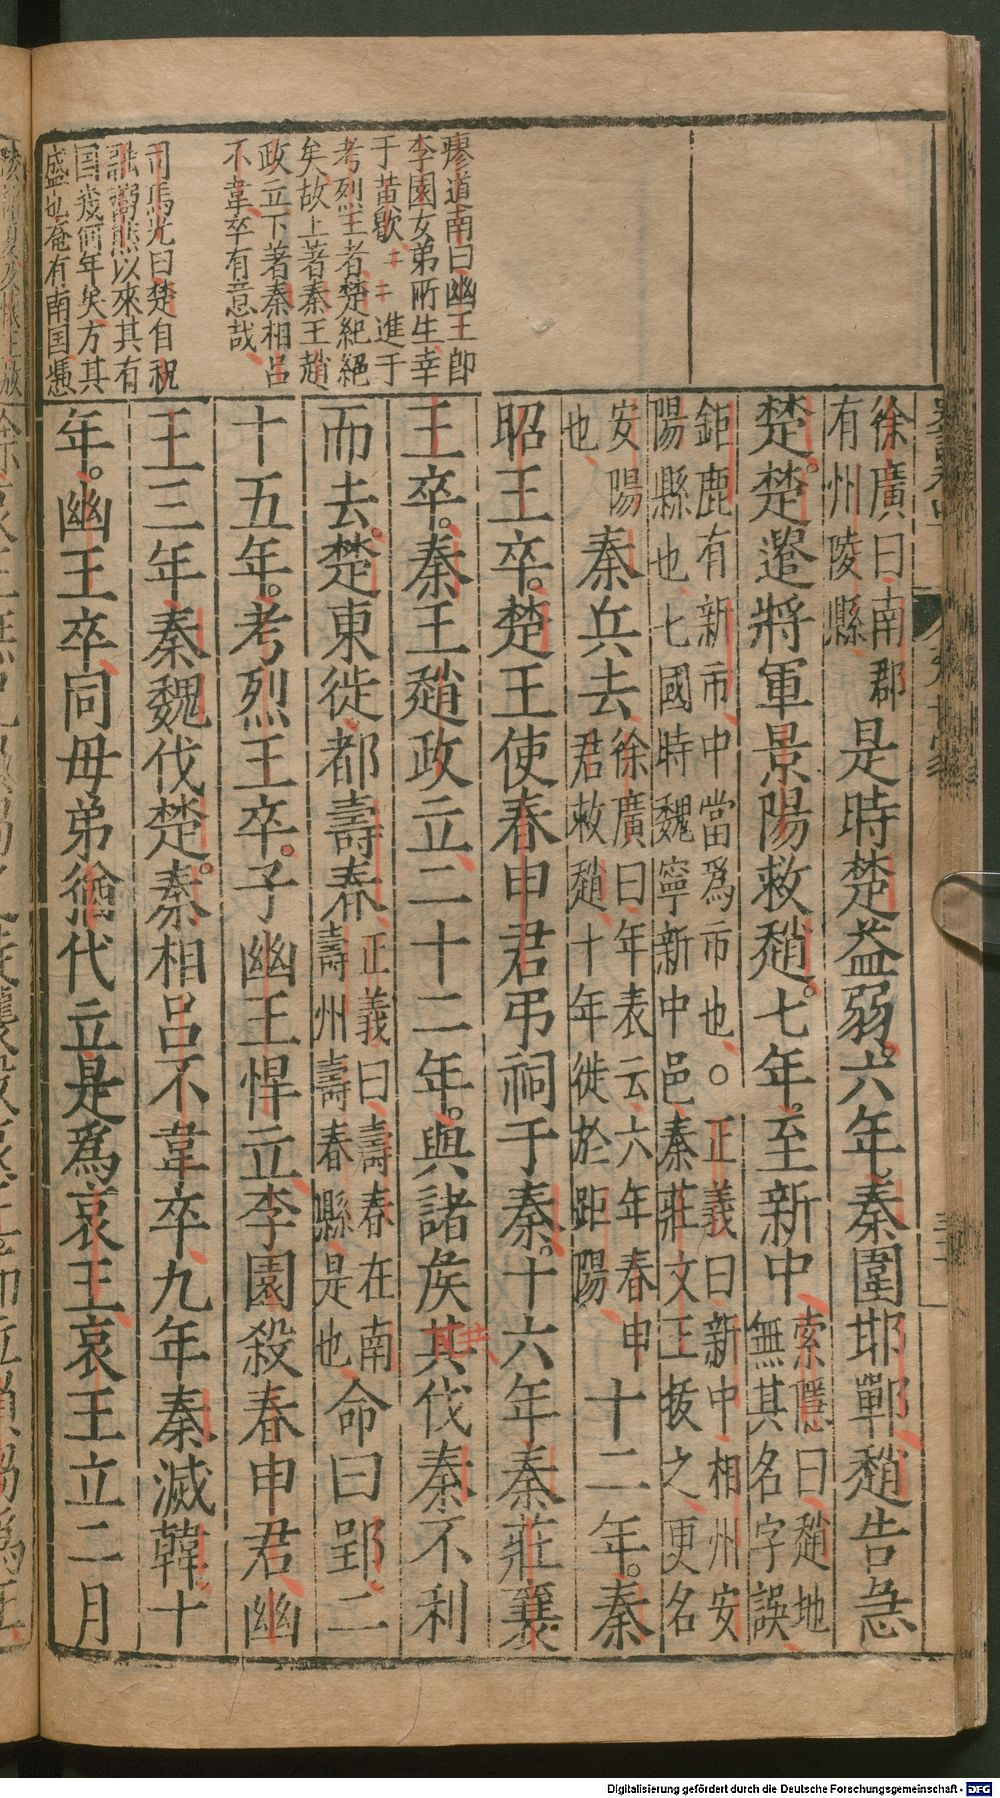 廖道南曰幽王卽
李園女弟所生幸
于黃歇
進于
考烈王者楚絕絕
矣故上著秦王趙
政立下著秦相呂
不韋卒有意哉
司馬光曰楚自祝
融鬻熊以來其有
国幾何年矣方其
盛也奄有南国憑
徐廣曰南郡
有州陵縣
是時楚益弱六年秦圍邯鄲趙告急
楚楚遣將軍景陽救趙七年至新中
索隱曰趙地
無其名字誤
鉅鹿有新市中當爲市也○正義曰新中相州安
陽縣也七國時魏寧新中邑秦莊文王拔之更名
安陽
也
秦兵去
徐廣曰年表云六年春申
君救趙十年徙於距陽
十二年秦
昭王卒楚王使春申君弔祠于秦十六年秦莊襄
王卒秦王趙政立二十二年與諸侯共伐秦不利
而去楚東徙都壽春
正義曰壽春在南
壽州壽春縣是也
命曰郢二
十五年考烈王卒子幽王悍立李園殺春申君幽
王三年秦魏伐楚秦相呂不韋卒九年秦滅韓十
年幽王卒同母弟猶代立是爲哀王哀王立二月
Digitalisierung gefördert durch die Deutsche Forschungsgemeinschaft - DFG